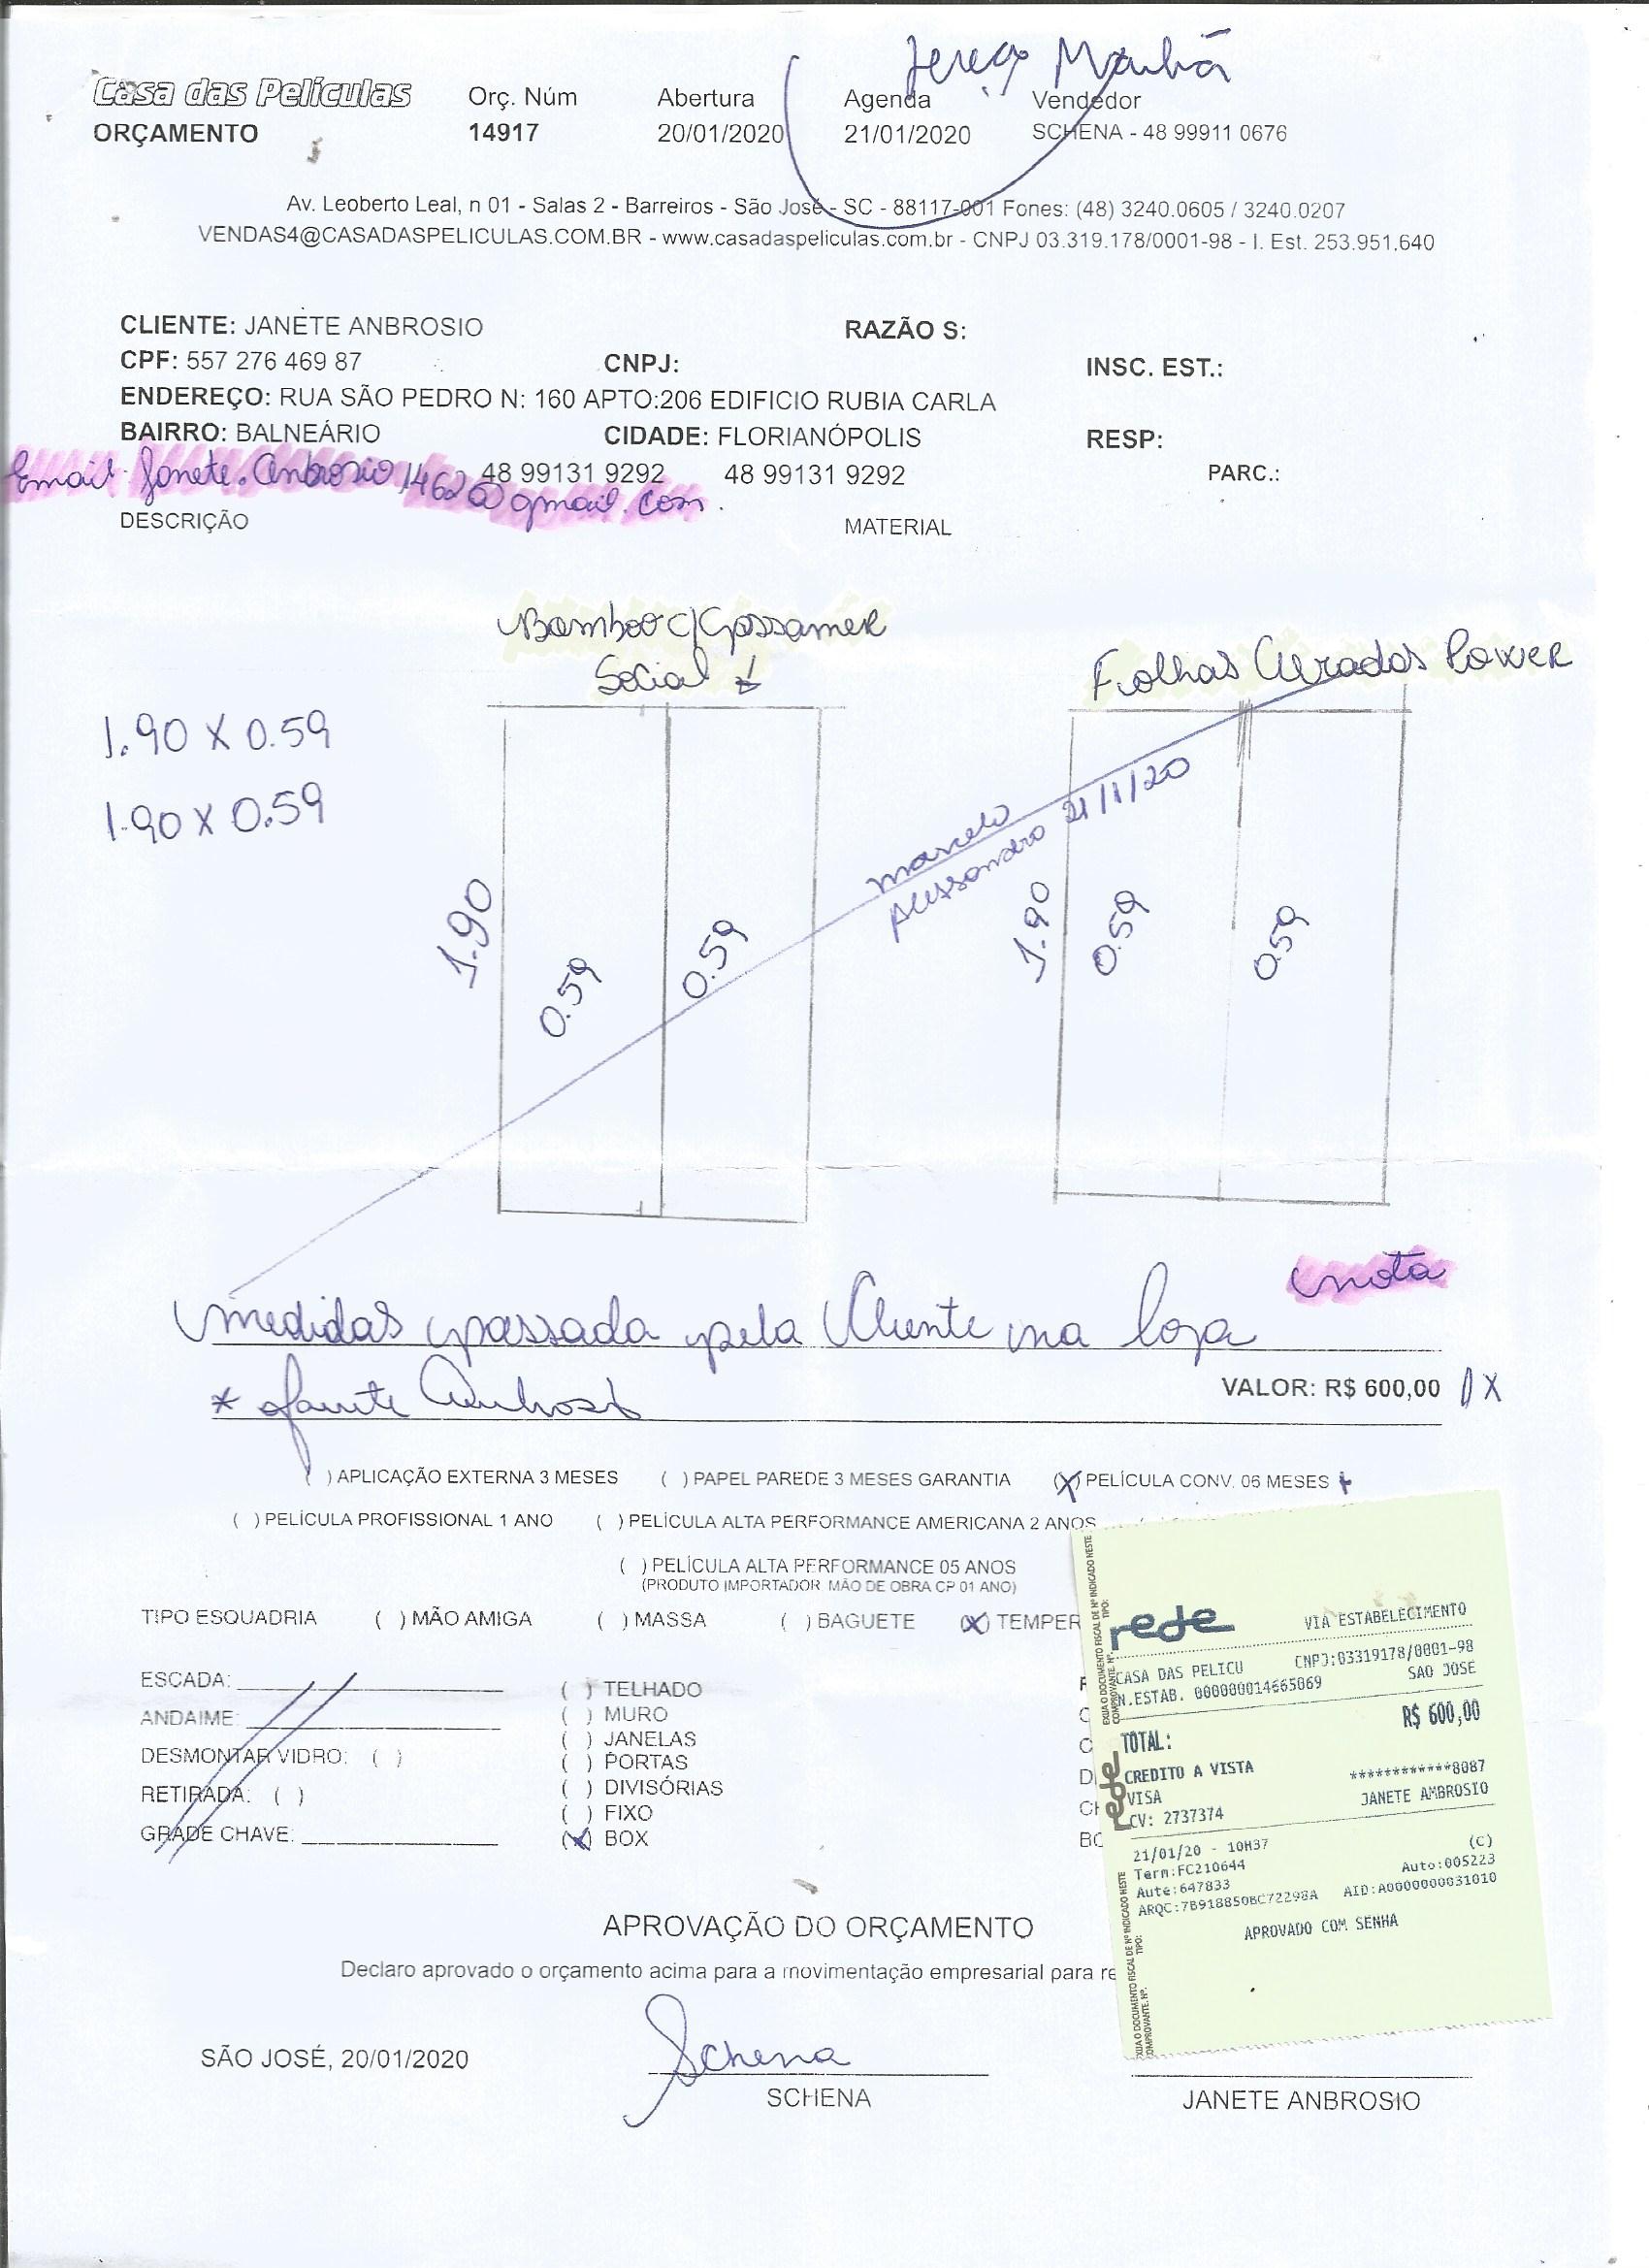 Jereça Manhã
Casa das Películas Orç. Núm Abertura Agenda Vendedor
ORÇAMENTO 14917 20/01/2020 21/01/2020 SCHENA - 48 99911 0676
Av. Leoberto Leal, n 01 - Salas 2 - Barreiros - São José - SC - 88117-001 Fones: (48) 3240.0605 / 3240.0207
VENDAS4@CASADASPELICULAS.COM.BR - www.casadaspeliculas.com.br - CNPJ 03.319.178/0001-98 - I. Est. 253.951.640
CLIENTE: JANETE ANBROSIO RAZÃO S:
CPF: 557 276 469 87 CNPJ: INSC. EST.:
ENDEREÇO: RUA SÃO PEDRO N: 160 APTO:206 EDIFICIO RUBIA CARLA
BAIRRO: BALNEÁRIO CIDADE: FLORIANÓPOLIS RESP:
48 99131 9292 48 99131 9292 PARC.:
Email Janete.Ambrosio1462@gmail.com.
DESCRIÇÃO MATERIAL
Bamboo c/ Gossamer
Social
Folhas Power
1.90 X 0.59
1.90 X 0.59
marcelo
Alessandro 21/1/20
1.90 0.59 0.59
1.90 0.59 0.59
nota
medidas passada pela Cliente na loja
* Janete Ambrosio
VALOR: R$ 600,00 1X
( ) APLICAÇÃO EXTERNA 3 MESES ( ) PAPEL PAREDE 3 MESES GARANTIA (X) PELÍCULA CONV. 06 MESES
( ) PELÍCULA PROFISSIONAL 1 ANO ( ) PELÍCULA ALTA PERFORMANCE AMERICANA 2 ANOS
( ) PELÍCULA ALTA PERFORMANCE 05 ANOS
(PRODUTO IMPORTADOR MÃO DE OBRA CP 01 ANO)
TIPO ESQUADRIA ( ) MÃO AMIGA ( ) MASSA ( ) BAGUETE (X) TEMPER
ESCADA:
ANDAIME:
DESMONTAR VIDRO: ( )
RETIRADA: ( )
GRADE CHAVE:
( ) TELHADO
( ) MURO
( ) JANELAS
( ) PORTAS
( ) DIVISÓRIAS
( ) FIXO
(X) BOX
rede VIA ESTABELECIMENTO
CASA DAS PELICU CNPJ:03319178/0001-98
N.ESTAB. 000000014665069 SAO JOSE
R$ 600,00
TOTAL:
CREDITO A VISTA ************8087
VISA JANETE AMBROSIO
CV: 2737374
21/01/20 - 10H37 (C)
Term:FC210644 Auto:005223
Aute:647833
ARQC:7B918850BC72298A AID:A0000000031010
APROVADO COM SENHA
APROVAÇÃO DO ORÇAMENTO
Declaro aprovado o orçamento acima para a movimentação empresarial para re
Schena
SÃO JOSÉ, 20/01/2020
SCHENA JANETE ANBROSIO